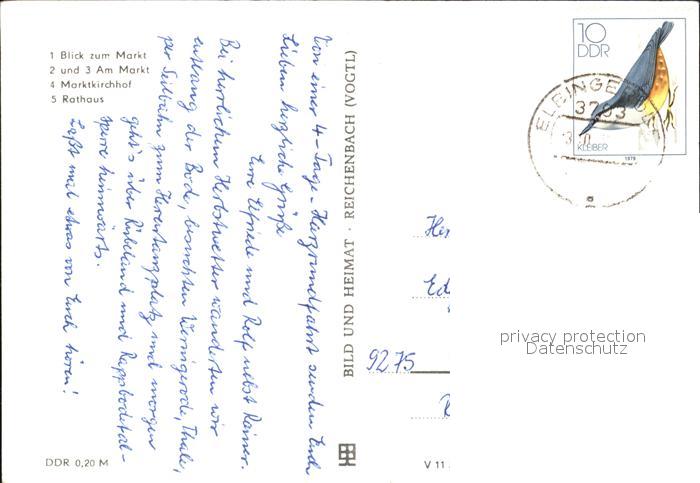 1 Blick zum Markt
2 und 3 Am Markt
4 Marktkirchhof
5 Rathaus
Von einer 4-Tage-Harzrundfahrt senden Euch
Lieben herzliche Grüße
Eure Elfriede und Rolf nebst Rainer.
Bei herrlichem Herbstwetter wanderten wir
entlang der Bode, besuchten Wernigerode, Thale,
per Seilbahn zum Hexentanzplatz und morgen
geht's über Rübeland und Rappbodetal-
sperre heimwärts.
Laßt mal etwas von Euch hören!
DDR 0,20 M
BILD UND HEIMAT · REICHENBACH (VOGTL)
V 11
10
DDR
KLEIBER
1979
ELBINGERODE
3703
9275
privacy protection
Datenschutz